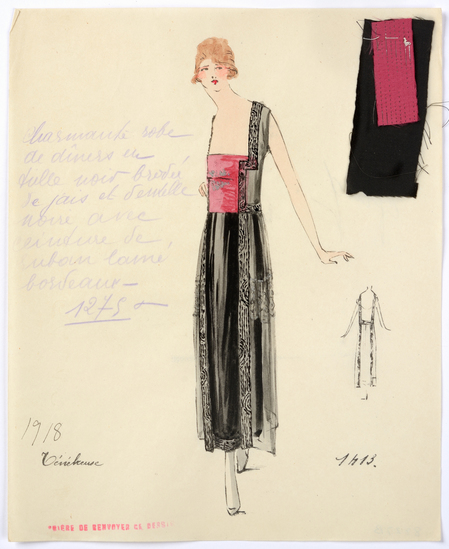 charmante robe
de dîners en
tulle noir brodé
de jais et dentelle
noire avec
ceinture de
ruban lamé
bordeaux —
1275
1918
Ténébreuse
1413.
PRIÈRE DE RENVOYER CE DESSIN